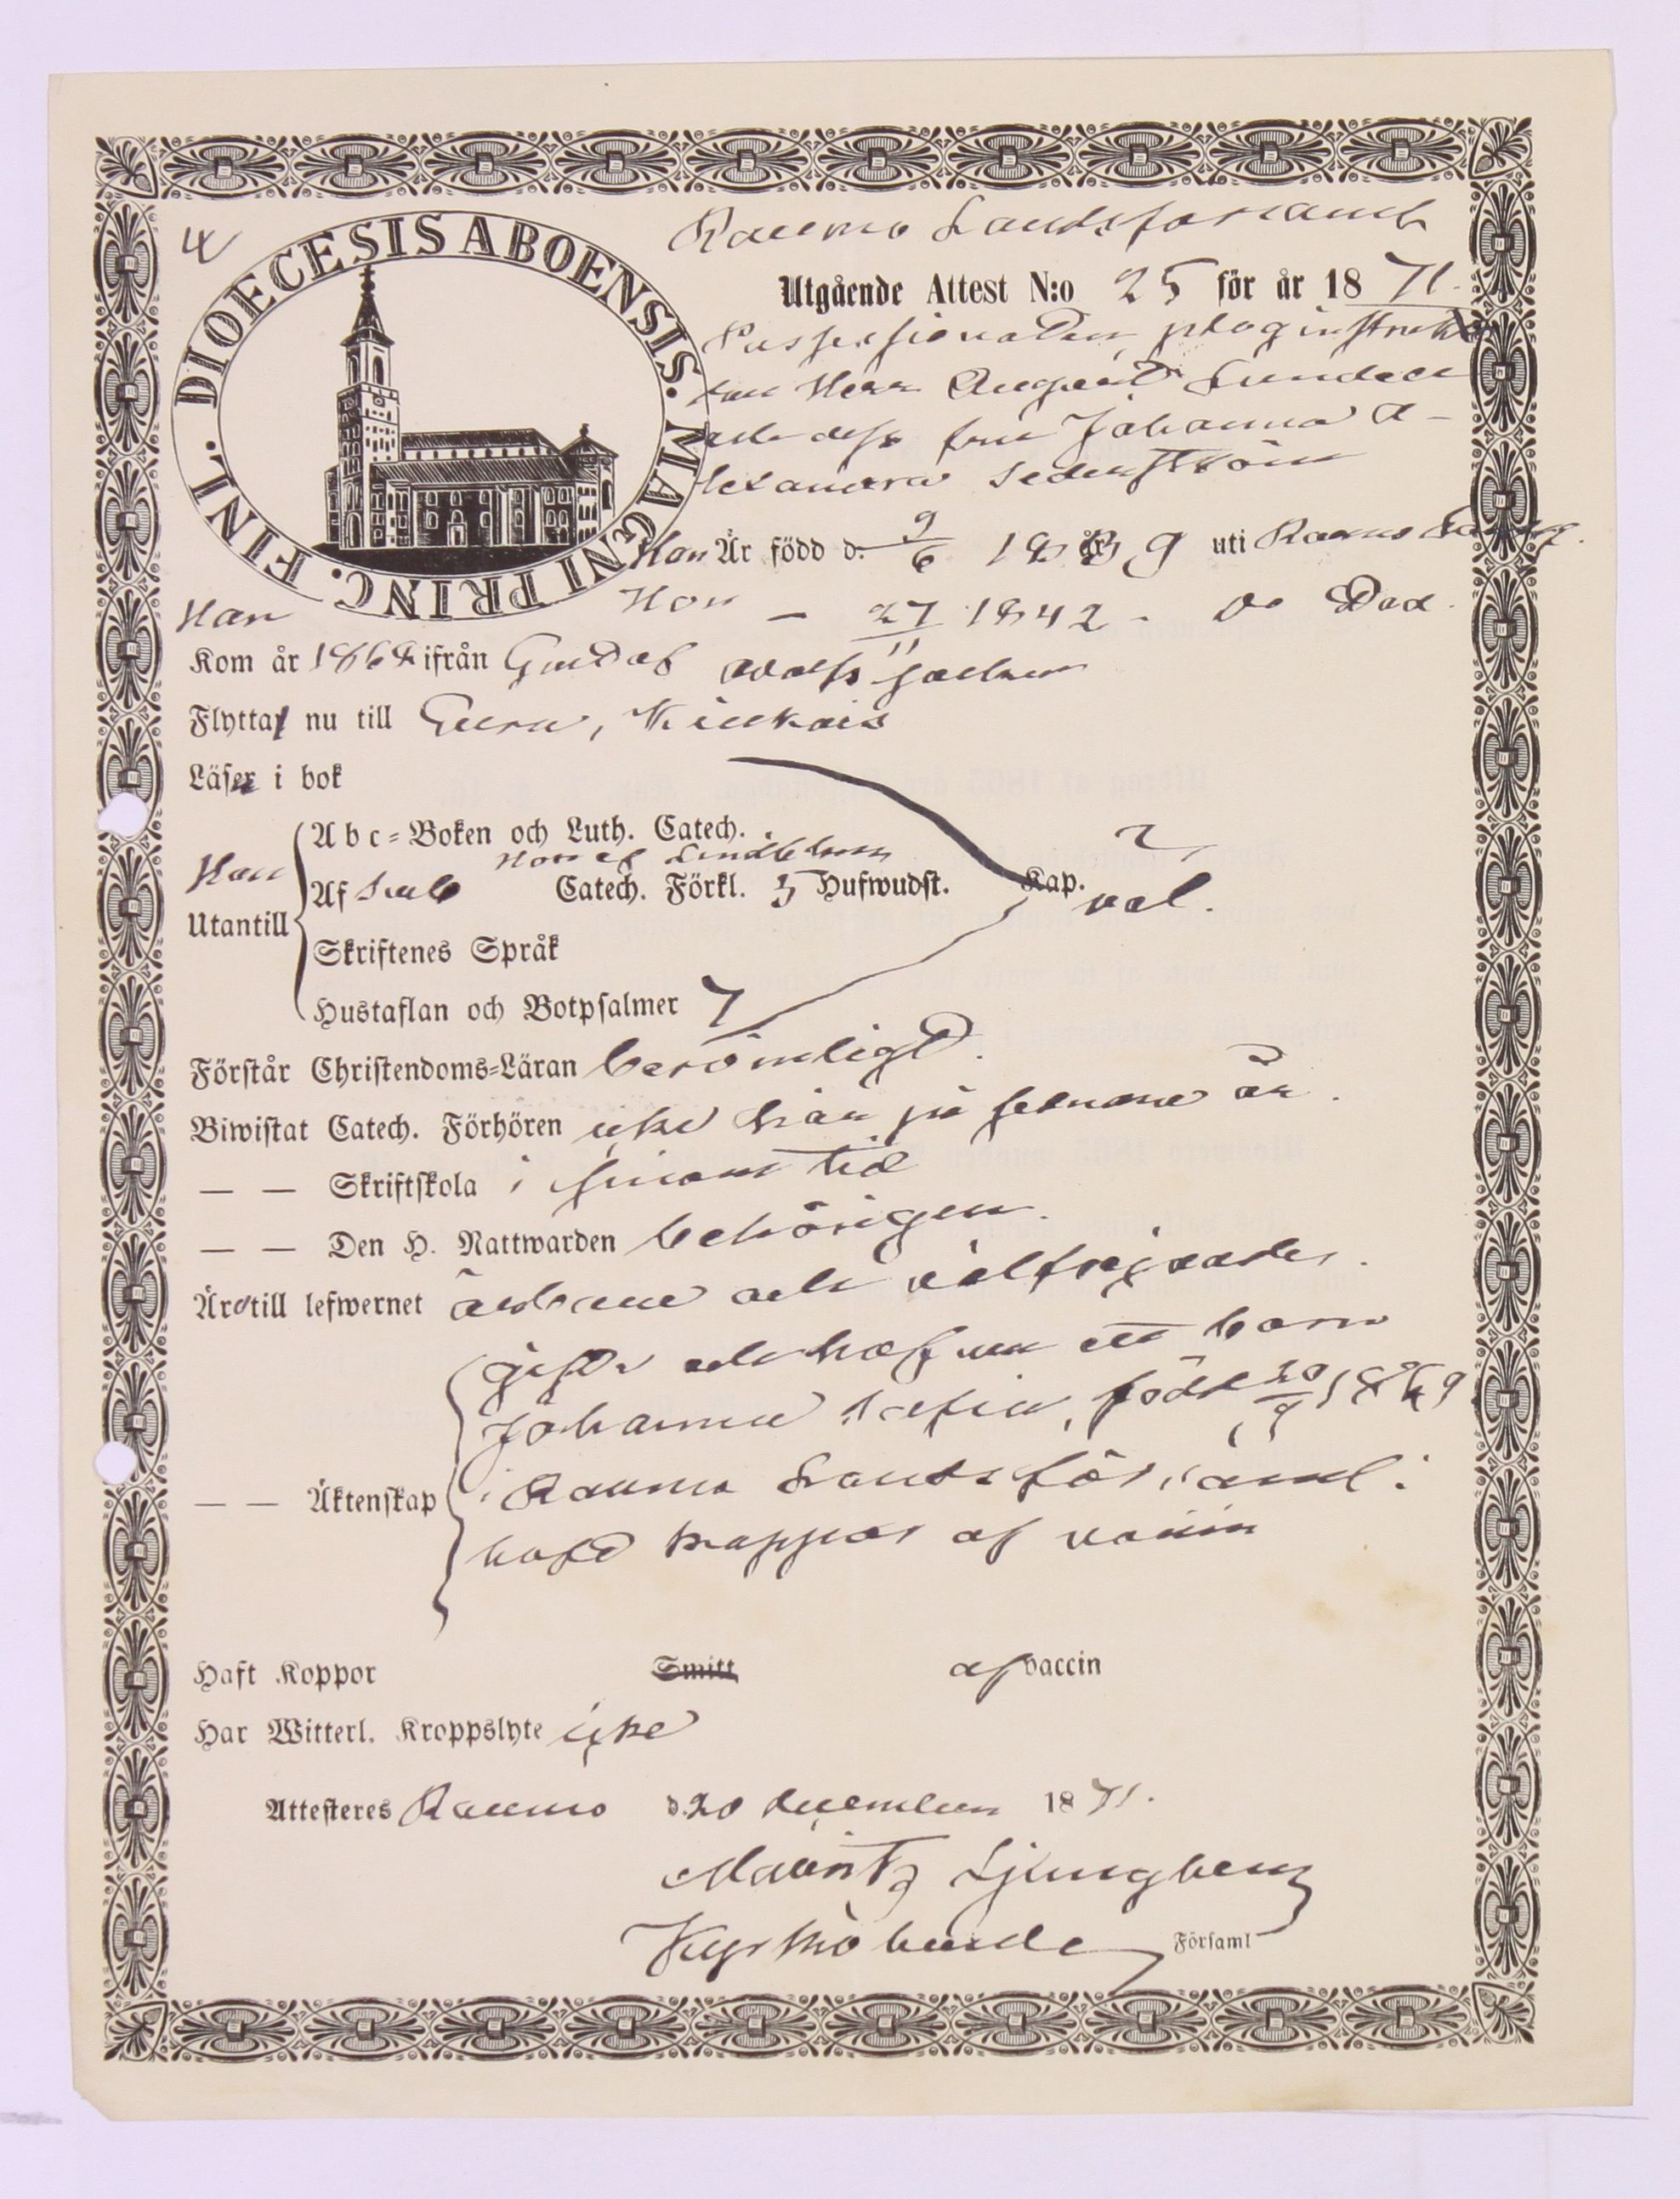 4
DIOECESIS ABOENSIS. MAGNI PRINC. FINL.
Raumo Landsförsaml
Utgående Attest N:o 25 för år 1871.
Possessionaten, ploginstruk-
Herr August Lunden
och dess fru Johanna A-
lexandra Sederström
Han Är född d. 9/6 1839 uti Raumo
Hon - 27/11 1842 - Do
Han
Kom år 186 ifrån Gustaf Adolfs
Flytta nu till Eura, Kiukais
Läser i bok
Abc-Boken och Luth. Catech.
Hon af Lindblom
Han Af Catech. Förkl. 5 Hufwudst. Kap. väl.
Utantill
Skriftenes Språk
Hustaflan och Botpsalmer 7
Förstår Christendoms-Läran berömligt.
Biwistat Catech. Förhören icke här på sednare år.
— — Skriftskola i sinom tid
— — Den H. Nattwarden behörigen.
Äro till lefwernet ärbara och välfrejdade.
gifta och hafwa ett barn
Johanna Sofia, född 20/9 1869
— — Äktenskap i Raumo Landsförsaml:
haft koppor af vaccin
Haft Koppor Smitt af vaccin
Har Witterl. Kroppslyte icke
Attesteres Raumo d. 20 december 1871.
Mauritz Ljungberg
Kyrkoherde Församl